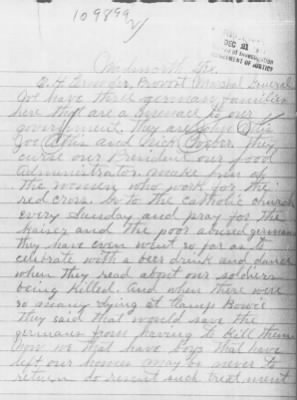 109899
DEC 21
DEPARTMENT OF JUSTICE
Tex.
Provost Marshal General
We have three german families
here that are a menace to our
government. They are John
Joe and They
curse our President our food
Administrator make fun of
the women who work for the
red cross. Go to the Catholic church
every Sunday and pray for the
Kaiser and the poor abused germans
they have even went so far as to
celebrate with a beer drink and dance
when they read about our soldiers
being killed. And when there were
so many dying at Camp Bowie
they said that would save the
germans from having to kill them
Now we that have boys that have
left our homes may be never to
return do resent such treatment